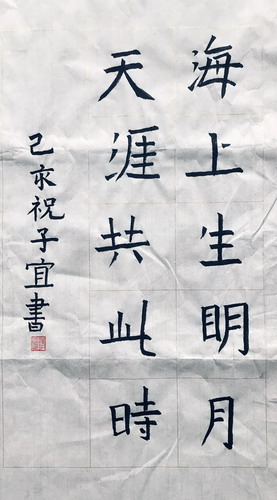 海上生明月
天涯共此時
己亥祝子宜書